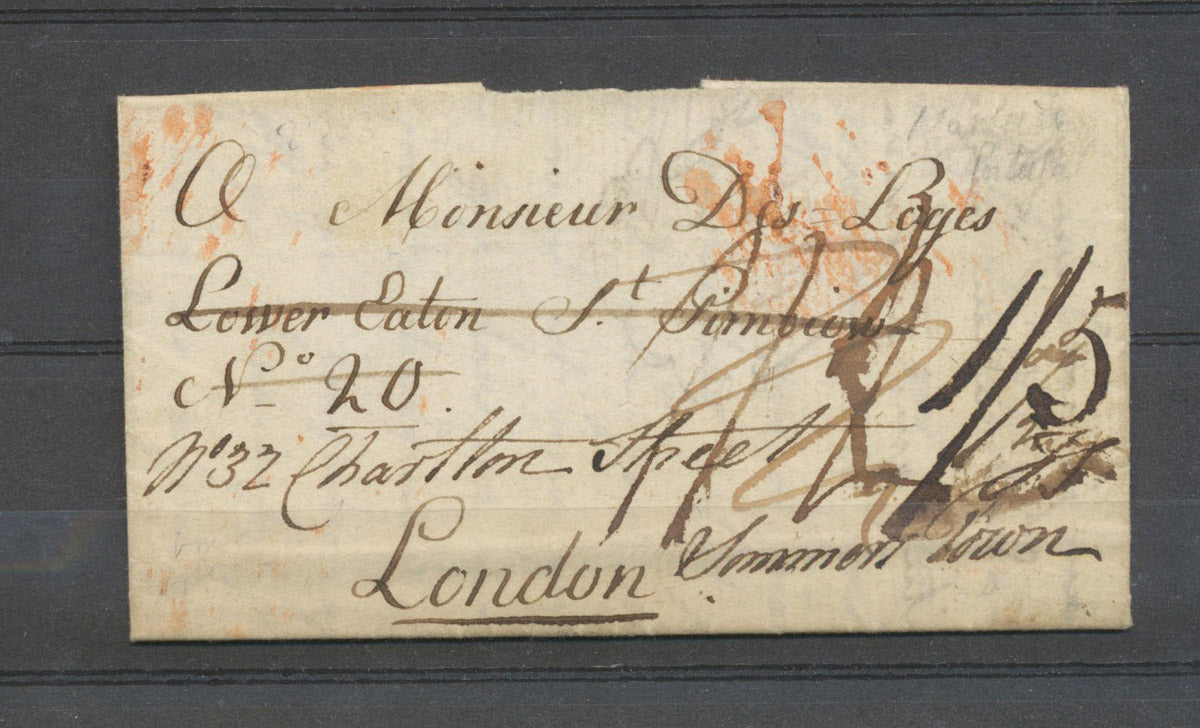 A Monsieur Des=Loges
Lower Eaton St. Pimbicow
No 20.
No 32 Charlton Street
London
Sommers Town
1/5